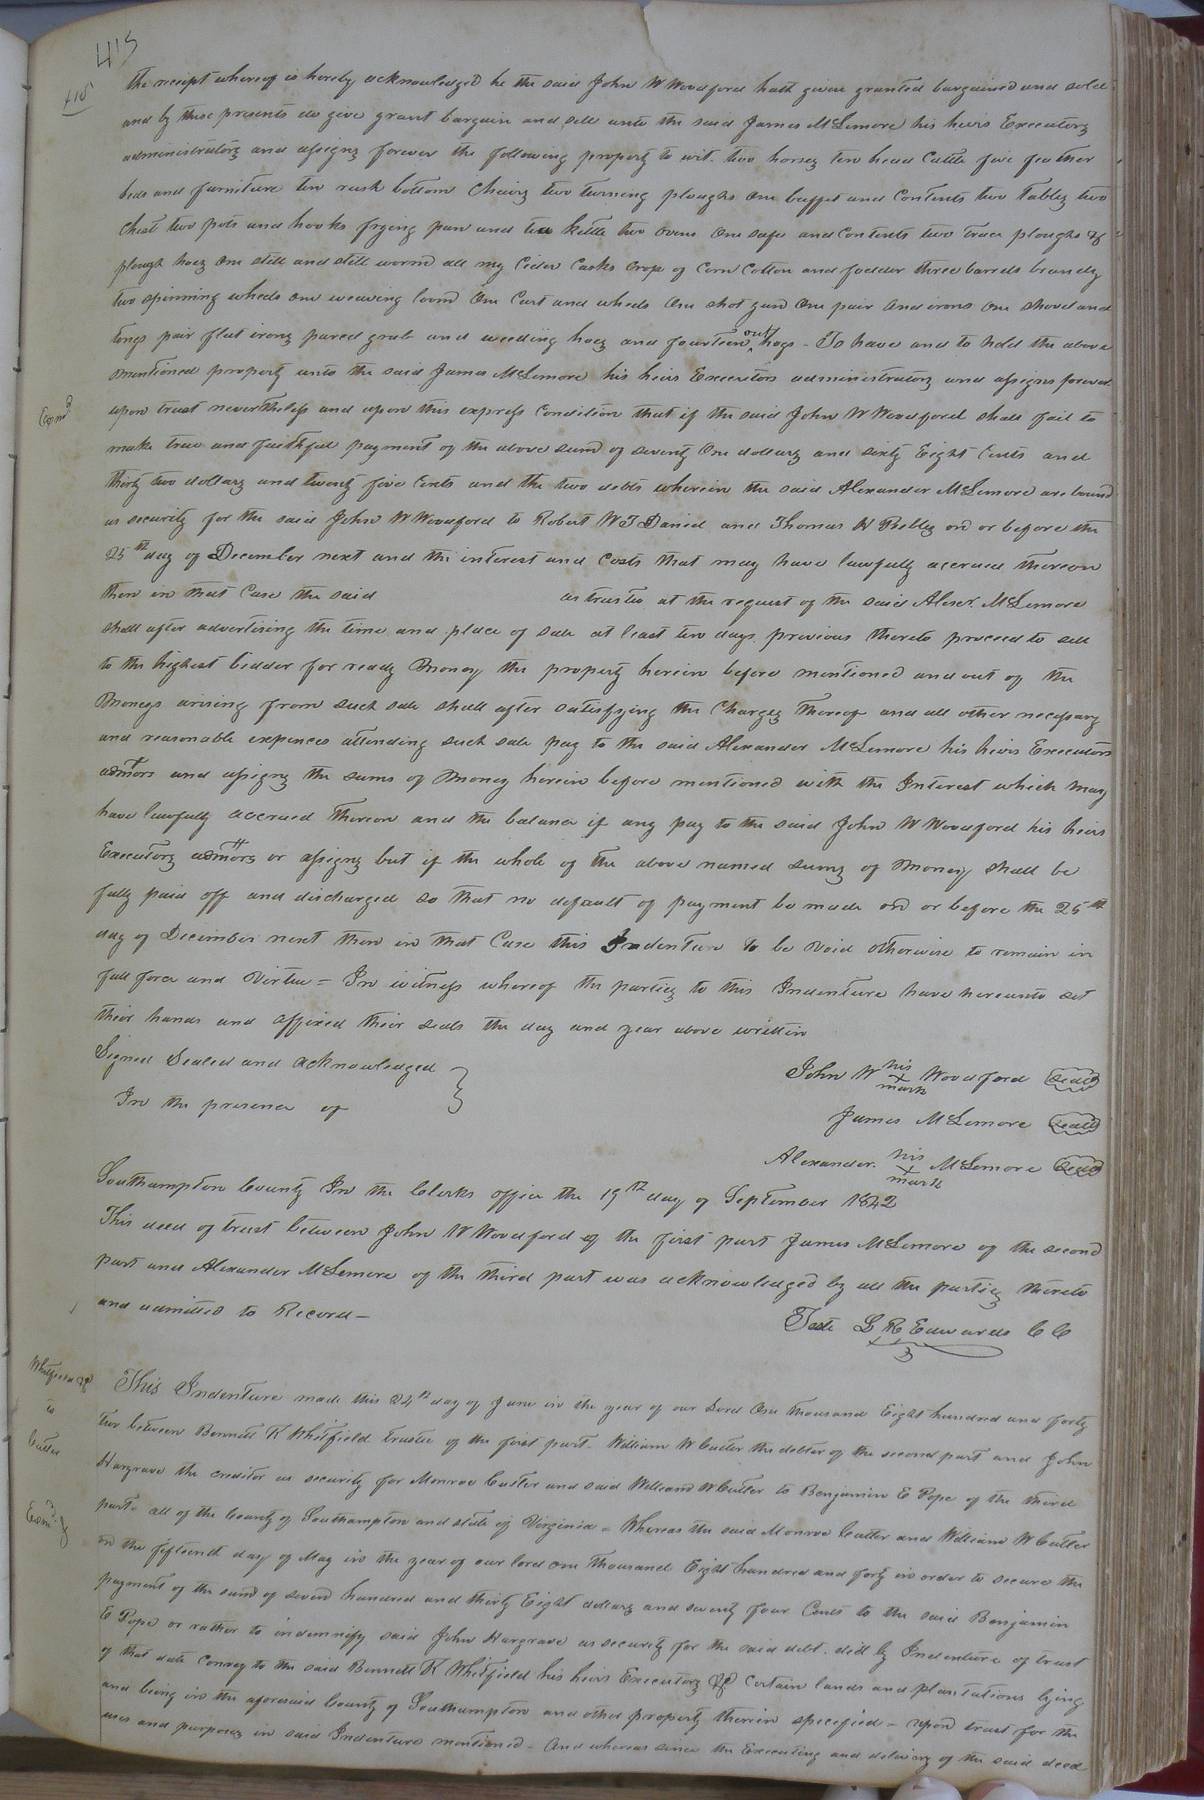 415
415
the receipt whereof is hereby acknowledged he the said John W Woodford hath given granted bargained and sold
and by these presents do give grant bargain and sell unto the said James McLemore his heirs Executors
administrators and assigns forever the following property to wit. two horses ten head Cattle five feather
beds and furniture ten rush bottom Chairs two turning ploughs one buffet and Contents two Tables two
Chest two pots and hooks frying pan and tea kettle two ovens one safe and Contents two trace ploughs &
plough hoes One still and still worm all my Cider Casks Crop of Corn Cotton and fodder three barrels brandy
two spinning wheels one weaving loom One Cart and wheels One shot gun One pair And irons One shovel and
tongs pair flat irons parcel grub and weeding hoes and fourteen out hogs - To have and to hold the above
mentioned property unto the said James McLemore his heirs Executors administrators and assigns forever
Exmd
upon trust nevertheless and upon this express Condition that if the said John W Woodford shall fail to
make true and faithful payment of the above sum of seventy One dollars and sixty Eight Cents and
thirty two dollars and twenty five Cents and the two debts wherein the said Alexander McLemore are bound
as security for the said John W Woodford to Robert W T Daniel and Thomas H Peebles on or before the
25th day of December next and the interest and Costs that may have lawfully accrued thereon
then in that Case the said as trustee at the request of the said Alexr. McLemore
shall after advertising the time and place of sale at least ten days previous thereto proceed to sell
to the highest bidder for ready Money the property herein before mentioned and out of the
Moneys arising from such sale shall after satisfying the Charges thereof and all other necessary
and reasonable expences attending such sale pay to the said Alexander McLemore his heirs Executors
admors and assigns the sums of Money herein before mentioned with the Interest which may
have lawfully accrued thereon and the balance if any pay to the said John W Woodford his heirs
Executors admors or assigns but if the whole of the above named sums of Money shall be
fully paid off and discharged so that no default of payment be made on or before the 25th
day of December next then in that Case this Indenture to be void otherwise to remain in
full force and Virtue = In witness whereof the parties to this Indenture have hereunto set
their hands and affixed their seals the day and year above written
Signed Sealed and acknowledged
In the presence of
John W his x mark Woodford Seal
James McLemore Seal
Alexander his x mark McLemore Seal
Southampton County In the Clerks office the 19th day of September 1842
This deed of trust between John W Woodford of the first part James McLemore of the second
part and Alexander McLemore of the third part was acknowledged by all the parties thereto
and admitted to Record -
Teste L R Edwards C C
Whitfield &c
to
Cutler
Exmd.
This Indenture made this 24th day of June in the year of our Lord One thousand Eight hundred and forty
two between Bennett K Whitfield trustee of the first part. William W Cutler the debtor of the second part and John
Hargrave the creditor as security for Monroe Cutler and said William W Cutler to Benjamin E Pope of the third
part all of the County of Southampton and state of Virginia = Whereas the said Monroe Cutler and William W Cutler
on the fifteenth day of May in the year of our lord one thousand Eight hundred and forty in order to secure the
payment of the sum of seven hundred and thirty Eight dollars and seventy four Cents to the said Benjamin
E Pope or rather to indemnify said John Hargrave as security for the said debt. did by Indenture of trust
of that date Convey to the said Bennett K Whitfield his heirs Executors &c Certain lands and plantations lying
and being in the aforesaid County of Southampton and other property therein specified - upon trust for the
uses and purposes in said Indenture mentioned - And whereas since the Executing and delivery of the said deed